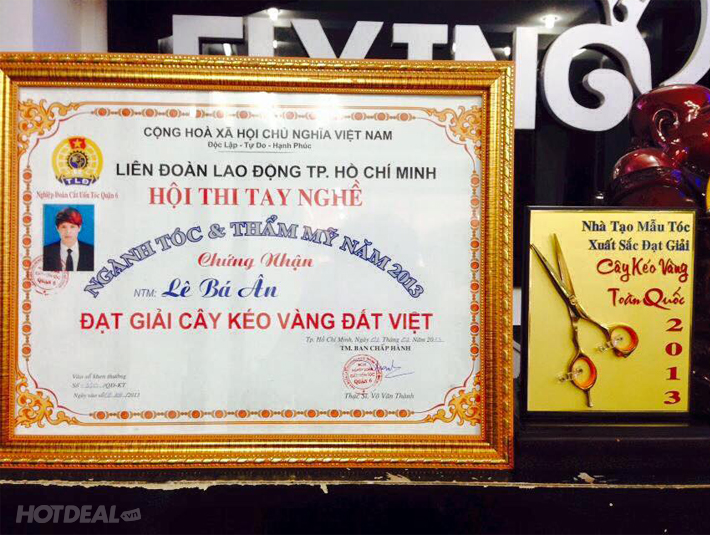 FLYING
CỘNG HOÀ XÃ HỘI CHỦ NGHĨA VIỆT NAM
Độc Lập - Tự Do - Hạnh Phúc
TLĐ
LIÊN ĐOÀN LAO ĐỘNG TP. HỒ CHÍ MINH
Nghiệp Đoàn Cắt Uốn Tóc Quận 6
HỘI THI TAY NGHỀ
NGÀNH TÓC & THẨM MỸ NĂM 2013
Chứng Nhận
NTM: Lê Bá Ân
ĐẠT GIẢI CÂY KÉO VÀNG ĐẤT VIỆT
Tp. Hồ Chí Minh, Ngày Tháng Năm
TM. BAN CHẤP HÀNH
Vào sổ khen thưởng
Số /QĐ-KT
Ngày vào sổ 2013
QUẬN 6
Thạc Sĩ. Võ Văn Thành
Nhà Tạo Mẫu Tóc
Xuất Sắc Đạt Giải
Cây Kéo Vàng
Toàn Quốc
2013
HOTDEAL.vn